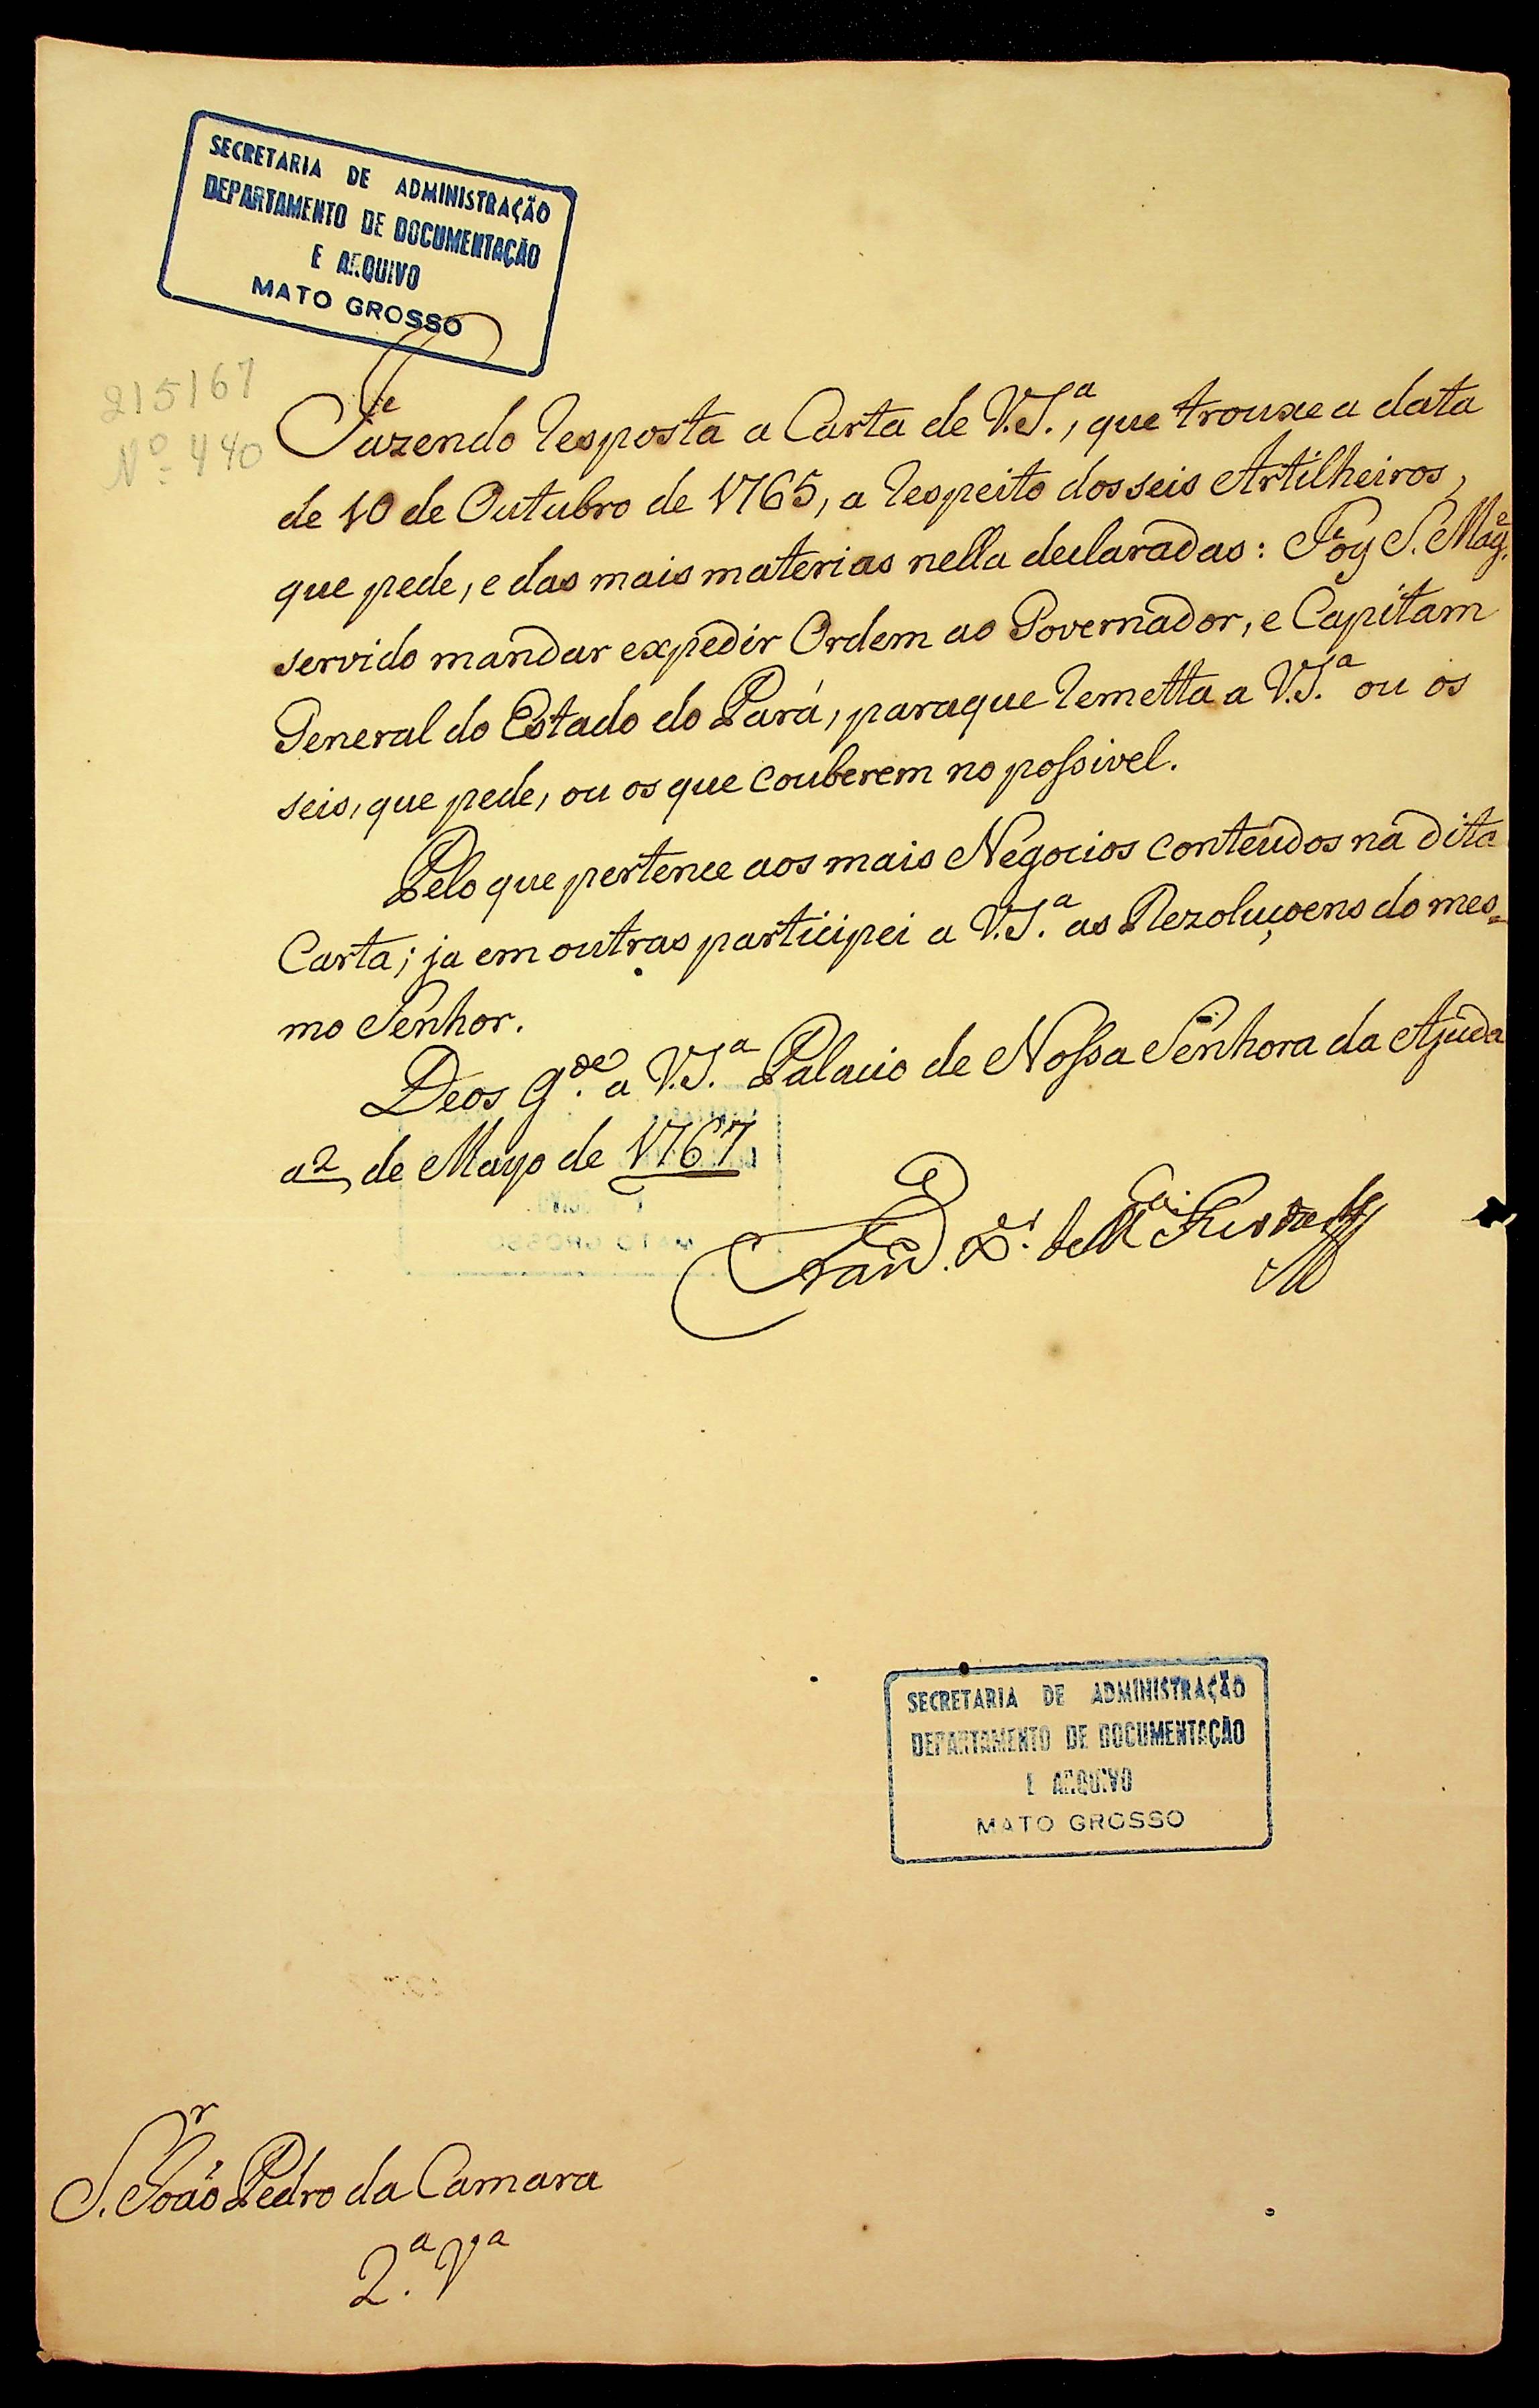 SECRETARIA DE ADMINISTRAÇÃO
DEPARTAMENTO DE DOCUMENTAÇÃO
E ARQUIVO
MATO GROSSO
215167
Nº 440
Fazendo resposta a Carta de V.S.ª, que trouxe a data
de 10 de Outubro de 1765, a respeito dos seis Artilheiros,
que pede, e das mais materias nella declaradas: Foy S. Mag.e
servido mandar expedir Ordem ao Governador, e Capitam
General do Estado do Pará, paraque remetta a V.S.ª ou os
seis, que pede, ou os que couberem no possivel.
Pelo que pertence aos mais Negocios conteudos na dita
Carta; ja em outras participei a V.S.ª as Rezoluçoens do mes=
mo Senhor.
Deos g.de a V.S.ª Palacio de Nossa Senhora da Ajuda
a 2 de Mayo de 1767
Fran.co X.er de M.ça Furtado
SECRETARIA DE ADMINISTRAÇÃO
DEPARTAMENTO DE DOCUMENTAÇÃO
E ARQUIVO
MATO GROSSO
S.r João Pedro da Camara
2.ª Vª